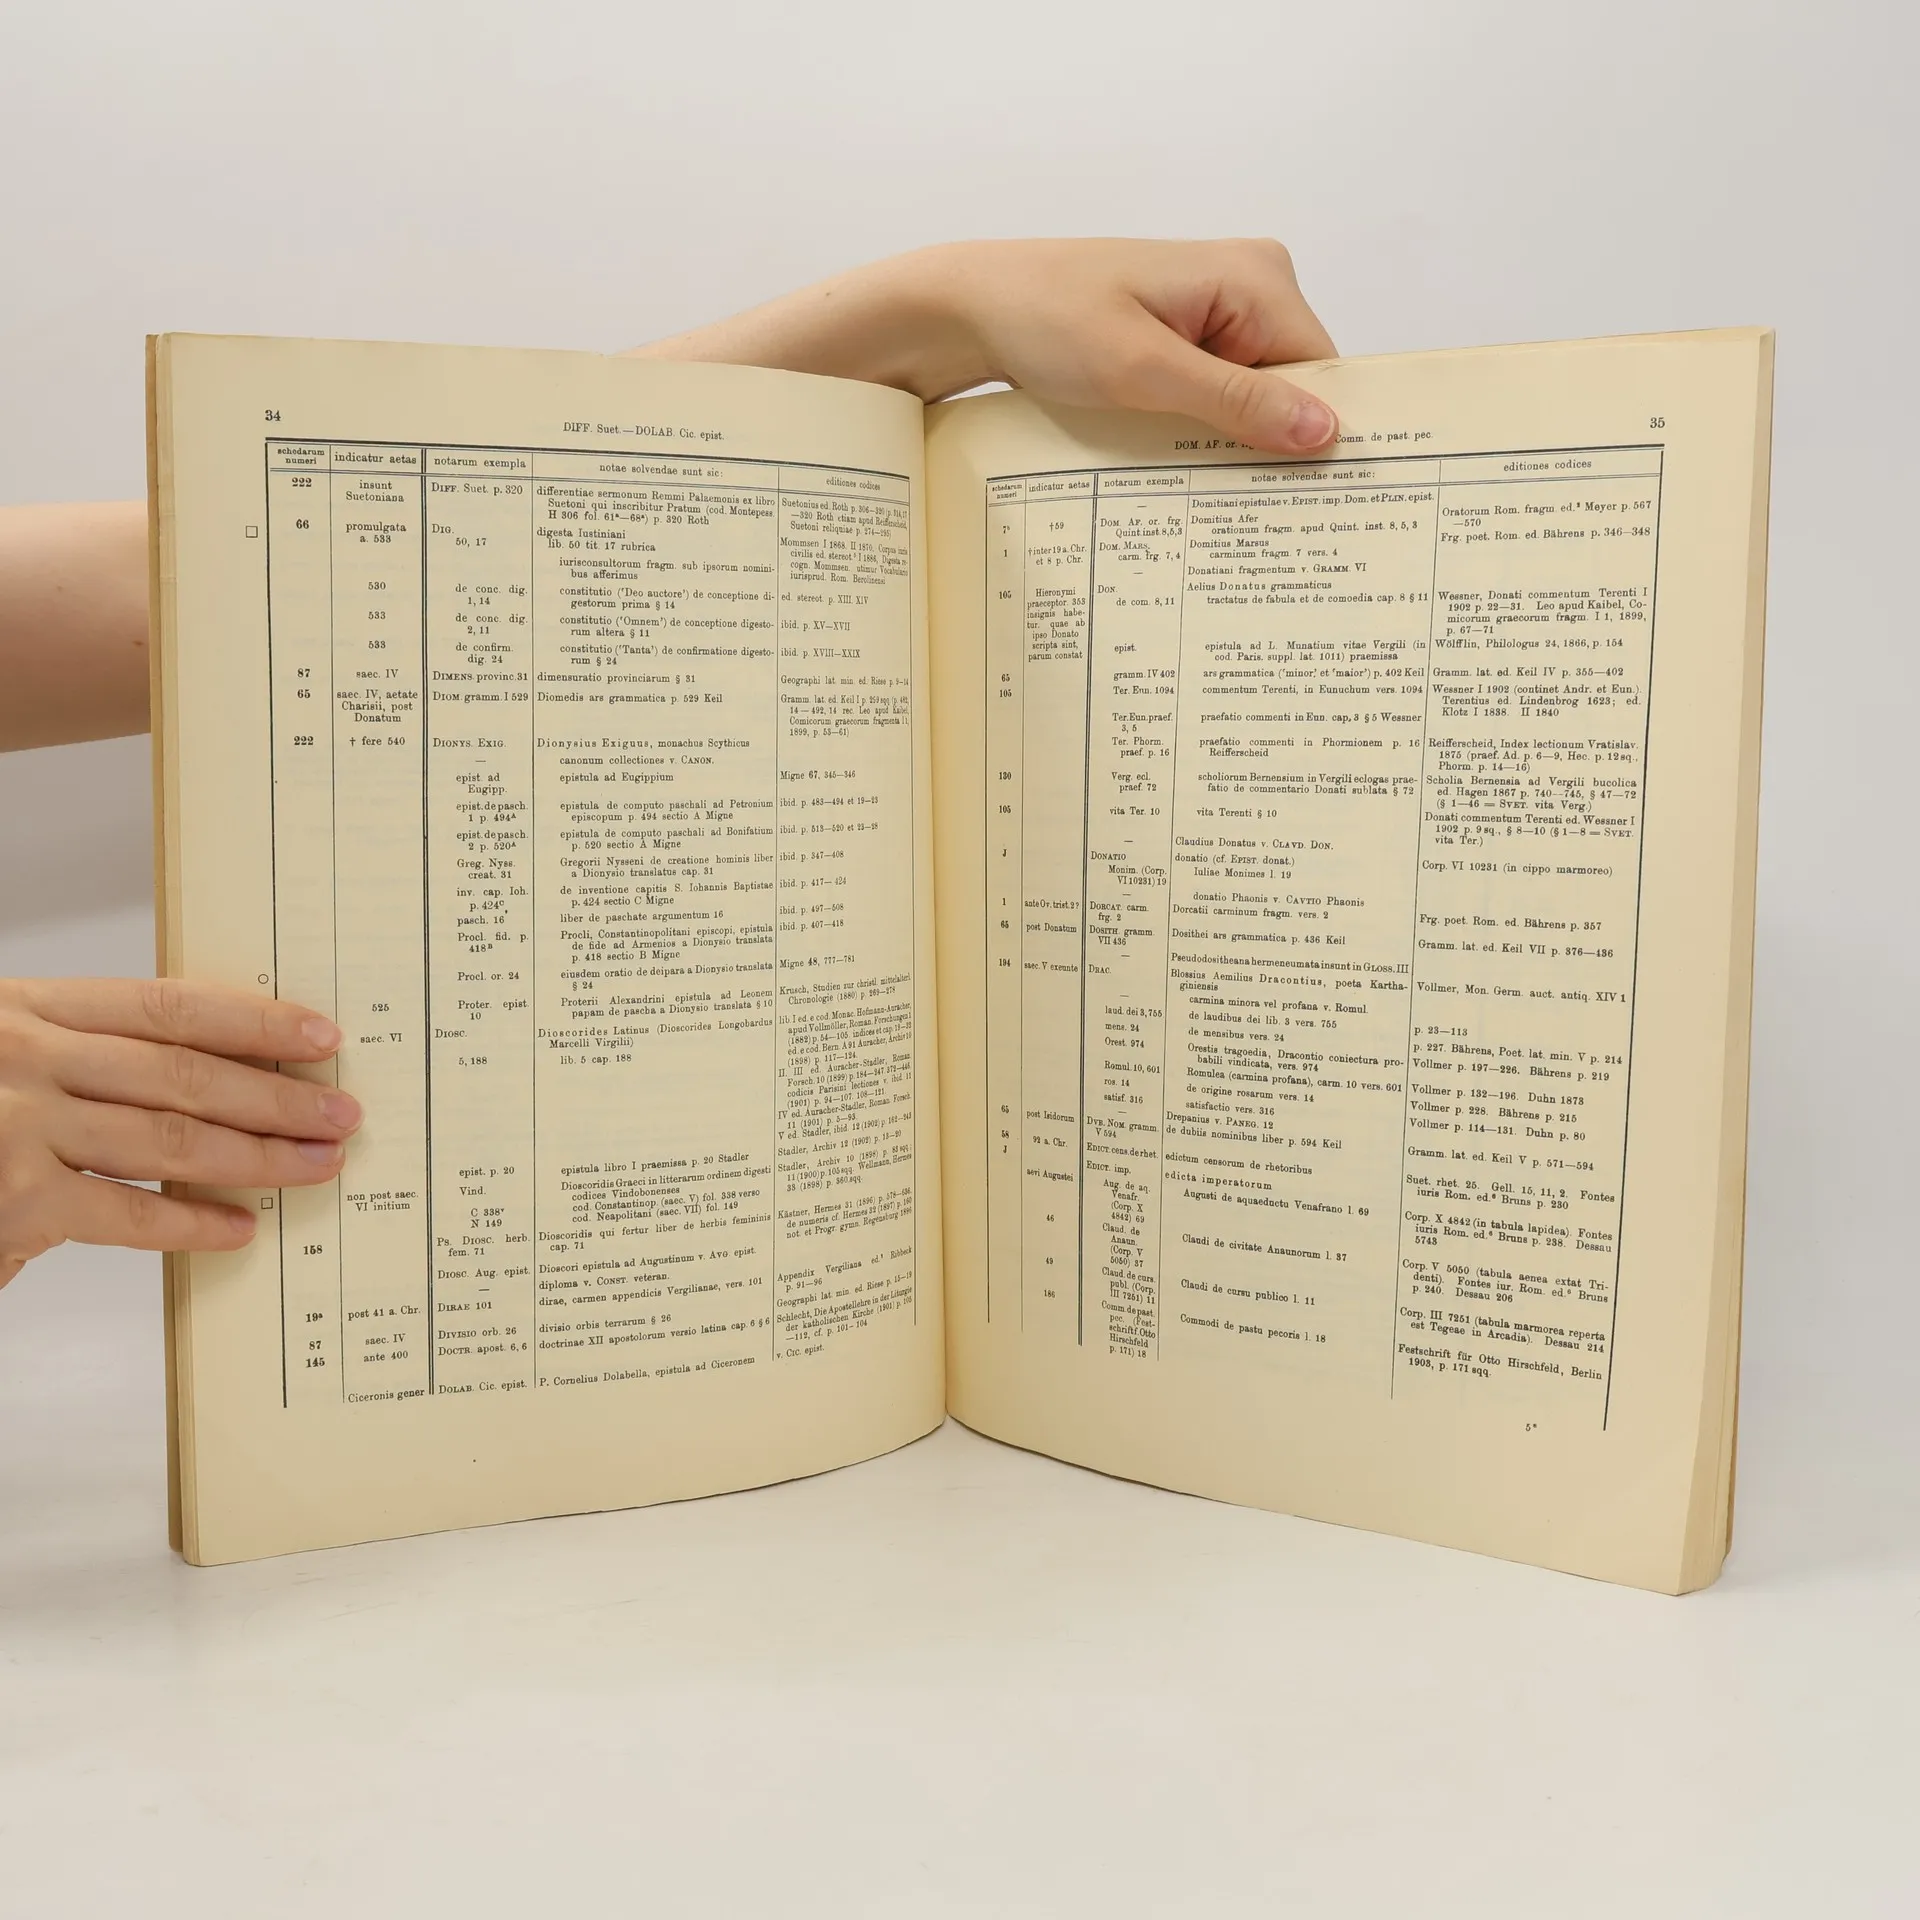 34
DIFF. Suet.—DOLAB. Cic. epist.
schedarum numeri | indicatur aetas | notarum exempla | notae solvendae sunt sic: | editiones codices
222 | insunt | DIFF. Suet. p. 320 | differentiae sermonum Remmi Palaemonis ex libro | Suetonius ed. Roth p. 306—320
Suetoniana | Suetoni qui inscribitur Pratum (cod. Montepess | —320 Roth etiam apud Reifferscheid,
H 306 fol. 61ᵃ—68ᵃ) p. 320 Roth | Suetoni reliquiae p. 274—295)
66 | promulgata | DIG. | digesta Iustiniani | Mommsen I 1868. II 1870. Corpus iuris
a. 533 | 50, 17 | lib. 50 tit. 17 rubrica | civilis ed. stereot.⁵ I 1886, Digesta re-
iurisconsultorum fragm. sub ipsorum nomini- | cogn. Mommsen. utimur Vocabulario
bus afferimus | iurisprud. Rom. Berolinensi
530 | de conc. dig. | constitutio ('Deo auctore') de conceptione di- | ed. stereot. p. XIII. XIV
1, 14 | gestorum prima § 14
533 | de conc. dig. | constitutio ('Omnem') de conceptione digesto- | ibid. p. XV—XVII
2, 11 | rum altera § 11
533 | de confirm. | constitutio ('Tanta') de confirmatione digesto- | ibid. p. XVIII—XXIX
dig. 24 | rum § 24
87 | saec. IV | DIMENS. provinc. 31 | dimensuratio provinciarum § 31 | Geographi lat. min. ed. Riese p. 9—14
65 | saec. IV, aetate | DIOM. gramm. I 529 | Diomedis ars grammatica p. 529 Keil | Gramm. lat. ed. Keil I p. 299 sqq (p. 482,
Charisii, post | 14—492, 14 rec. Leo apud Kaibel,
Donatum | Comicorum graecorum fragmenta I 1,
1899, p. 53—61)
222 | † fere 540 | DIONYS. EXIG. | Dionysius Exiguus, monachus Scythicus
— | canonum collectiones v. CANON.
epist. ad | epistula ad Eugippium | Migne 67, 345—346
Eugipp.
epist. de pasch. | epistula de computo paschali ad Petronium | ibid. p. 483—494 et 19—23
1 p. 494ᴬ | episcopum p. 494 sectio A Migne
epist. de pasch. | epistula de computo paschali ad Bonifatium | ibid. p. 513—520 et 23—28
2 p. 520ᴬ | p. 520 sectio A Migne
Greg. Nyss. | Gregorii Nysseni de creatione hominis liber | ibid. p. 347—408
creat. 31 | a Dionysio translatus cap. 31
inv. cap. Ioh. | de inventione capitis S. Iohannis Baptistae | ibid. p. 417—424
p. 424ᶜ | p. 424 sectio C Migne
pasch. 16 | liber de paschate argumentum 16 | ibid. p. 497—508
Procl. fid. p. | Procli, Constantinopolitani episcopi, epistula | ibid. p. 407—418
418ᴮ | de fide ad Armenios a Dionysio translata
p. 418 sectio B Migne
Procl. or. 24 | eiusdem oratio de deipara a Dionysio translata | Migne 48, 777—781
§ 24
525 | Proter. epist. | Proterii Alexandrini epistula ad Leonem | Krusch, Studien zur christl. mittelalterl.
10 | papam de pascha a Dionysio translata § 10 | Chronologie (1880) p. 269—278
saec. VI | DIOSC. | Dioscorides Latinus (Dioscorides Longobardus | lib I ed. e cod. Monac. Hofmann-Auracher,
Marcelli Virgilii) | apud Vollmöller, Roman. Forschungen 1
5, 188 | lib. 5 cap. 188 | (1882) p. 54—105. indices et cap. 18—23
ed. e cod. Bern. A 91 Auracher, Archiv 10
(1898) p. 117—124.
II. III ed. Auracher-Stadler, Roman.
Forsch. 10 (1899) p. 184—247. 372—446.
codicis Parisini lectiones v. ibid 11
(1901) p. 94—107. 108—121.
IV ed. Auracher-Stadler, Roman. Forsch.
11 (1901) p. 5—93.
V ed. Stadler, ibid. 12 (1902) p 162—243
Stadler, Archiv 12 (1902) p. 13—20
epist. p. 20 | epistula libro I praemissa p. 20 Stadler
Vind. | Dioscoridis Graeci in litterarum ordinem digesti | Stadler, Archiv 10 (1898) p. 83 sqq.;
non post saec. | codices Vindobonenses | 11 (1900) p. 105 sqq. Wellmann, Hermes
VI initium | C 338ᵛ | cod. Constantinop. (saec. V) fol. 338 verso | 33 (1898) p. 360 sqq.
N 149 | cod. Neapolitani (saec. VII) fol. 149
158 | PS. DIOSC. herb. | Dioscoridis qui fertur liber de herbis femininis | Kästner, Hermes 31 (1896) p. 578—636.
fem. 71 | cap. 71 | de numeris cf. Hermes 32 (1897) p. 160
not. et Progr. gymn. Regensburg 1896
DIOSC. Aug. epist. | Dioscori epistula ad Augustinum v. AVG epist.
— | diploma v. CONST. veteran.
19ᵃ | post 41 a. Chr. | DIRAE 101 | dirae, carmen appendicis Vergilianae, vers. 101 | Appendix Vergiliana ed.² Ribbeck
p. 91—96
87 | saec. IV | DIVISIO orb. 26 | divisio orbis terrarum § 26 | Geographi lat. min. ed. Riese p. 15—19
145 | ante 400 | DOCTR. apost. 6, 6 | doctrinae XII apostolorum versio latina cap. 6 § 6 | Schlecht, Die Apostellehre in der Liturgie
der katholischen Kirche (1901) p. 105
—112, cf. p. 101—104
Ciceronis gener | DOLAB. Cic. epist. | P. Cornelius Dolabella, epistula ad Ciceronem | v. CIC. epist.
35
DOM. AF. or. Comm. de past. pec.
schedarum numeri | indicatur aetas | notarum exempla | notae solvendae sunt sic: | editiones codices
— | Domitiani epistulae v. EPIST. imp. Dom. et PLIN. epist.
7ᵃ | † 59 | DOM. AF. or. frg. | Domitius Afer | Oratorum Rom. fragm. ed.² Meyer p. 567
Quint. inst. 8, 5, 3 | orationum fragm. apud Quint. inst. 8, 5, 3 | —570
1 | † inter 19 a. Chr. | DOM. MARS. | Domitius Marsus | Frg. poet. Rom. ed. Bährens p. 346—348
et 8 p. Chr. | carm. frg. 7, 4 | carminum fragm. 7 vers. 4
— | Donatiani fragmentum v. GRAMM. VI
105 | Hieronymi | DON. | Aelius Donatus grammaticus
praeceptor. 353 | de com. 8, 11 | tractatus de fabula et de comoedia cap. 8 § 11 | Wessner, Donati commentum Terenti I
insignis habe- | 1902 p. 22—31. Leo apud Kaibel, Co-
tur. quae ab | micorum graecorum fragm. I 1, 1899,
ipso Donato | p. 67—71
scripta sint, | epist. | epistula ad L. Munatium vitae Vergili (in | Wölfflin, Philologus 24, 1866, p. 154
parum constat | cod. Paris. suppl. lat. 1011) praemissa
65 | gramm. IV 402 | ars grammatica ('minor' et 'maior') p. 402 Keil | Gramm. lat. ed. Keil IV p. 355—402
105 | Ter. Eun. 1094 | commentum Terenti, in Eunuchum vers. 1094 | Wessner I 1902 (continet Andr. et Eun.).
Terentius ed. Lindenbrog 1623; ed.
Ter. Eun. praef. | praefatio commenti in Eun. cap, 3 § 5 Wessner | Klotz I 1838. II 1840
3, 5
Ter. Phorm. | praefatio commenti in Phormionem p. 16 | Reifferscheid, Index lectionum Vratislav.
praef. p. 16 | Reifferscheid | 1875 (praef. Ad. p. 6—9, Hec. p. 12 sq.,
Phorm. p. 14—16)
130 | Verg. ecl. | scholiorum Bernensium in Vergili eclogas prae- | Scholia Bernensia ad Vergili bucolica
praef. 72 | fatio de commentario Donati sublata § 72 | ed. Hagen 1867 p. 740—745, § 47—72
(§ 1—46 = SVET. vita Verg.)
105 | vita Ter. 10 | vita Terenti § 10 | Donati commentum Terenti ed. Wessner I
1902 p. 9 sq., § 8—10 (§ 1—8 = SVET.
vita Ter.)
— | Claudius Donatus v. CLAVD. DON.
J | DONATIO | donatio (cf. EPIST. donat.)
Monim. (Corp. | Iuliae Monimes l. 19 | Corp. VI 10231 (in cippo marmoreo)
VI 10231) 19
— | donatio Phaonis v. CAVTIO Phaonis
1 | ante Ov. trist. 2? | DORCAT. carm. | Dorcatii carminum fragm. vers. 2 | Frg. poet. Rom. ed. Bährens p. 357
frg. 2
65 | post Donatum | DOSITH. gramm. | Dosithei ars grammatica p. 436 Keil | Gramm. lat. ed. Keil VII p. 376—436
VII 436
— | Pseudodositheana hermeneumata insunt in GLOSS. III
194 | saec. V exeunte | DRAC. | Blossius Aemilius Dracontius, poeta Kartha- | Vollmer, Mon. Germ. auct. antiq. XIV 1
giniensis
— | carmina minora vel profana v. Romul.
laud. dei 3, 755 | de laudibus dei lib. 3 vers. 755 | p. 23—113
mens. 24 | de mensibus vers. 24 | p. 227. Bährens, Poet. lat. min. V p. 214
Orest. 974 | Orestis tragoedia, Dracontio coniectura pro- | Vollmer p. 197—226. Bährens p. 219
babili vindicata, vers. 974
Romul. 10, 601 | Romulea (carmina profana), carm. 10 vers. 601 | Vollmer p. 132—196. Duhn 1873
ros. 14 | de origine rosarum vers. 14 | Vollmer p. 228. Bährens p. 215
satisf. 316 | satisfactio vers. 316 | Vollmer p. 114—131. Duhn p. 80
— | Drepanius v. PANEG. 12
65 | post Isidorum | DVB. NOM. gramm. | de dubiis nominibus liber p. 594 Keil | Gramm. lat. ed. Keil V p. 571—594
V 594
58 | 92 a. Chr. | EDICT. cens. de rhet. | edictum censorum de rhetoribus | Suet. rhet. 25. Gell. 15, 11, 2. Fontes
iuris Rom. ed.⁶ Bruns p. 230
J | EDICT. imp. | edicta imperatorum
aevi Augustei | Aug. de aq. | Augusti de aquaeductu Venafrano l. 69 | Corp. X 4842 (in tabula lapidea). Fontes
Venafr. | iuris Rom. ed.⁶ Bruns p. 238. Dessau
(Corp. X | 5743
4842) 69
46 | Claud. de | Claudi de civitate Anaunorum l. 37 | Corp. V 5050 (tabula aenea extat Tri-
Anaun. | denti). Fontes iur. Rom. ed.⁶ Bruns
(Corp. V | p. 240. Dessau 206
5050) 37
49 | Claud. de curs. | Claudi de cursu publico l. 11 | Corp. III 7251 (tabula marmorea reperta
publ. (Corp. | est Tegeae in Arcadia). Dessau 214
III 7251) 11
186 | Comm. de past. | Commodi de pastu pecoris l. 18 | Festschrift für Otto Hirschfeld, Berlin
pec. (Fest- | 1903, p. 171 sqq.
schrift f. Otto
Hirschfeld
p. 171) 18
5*